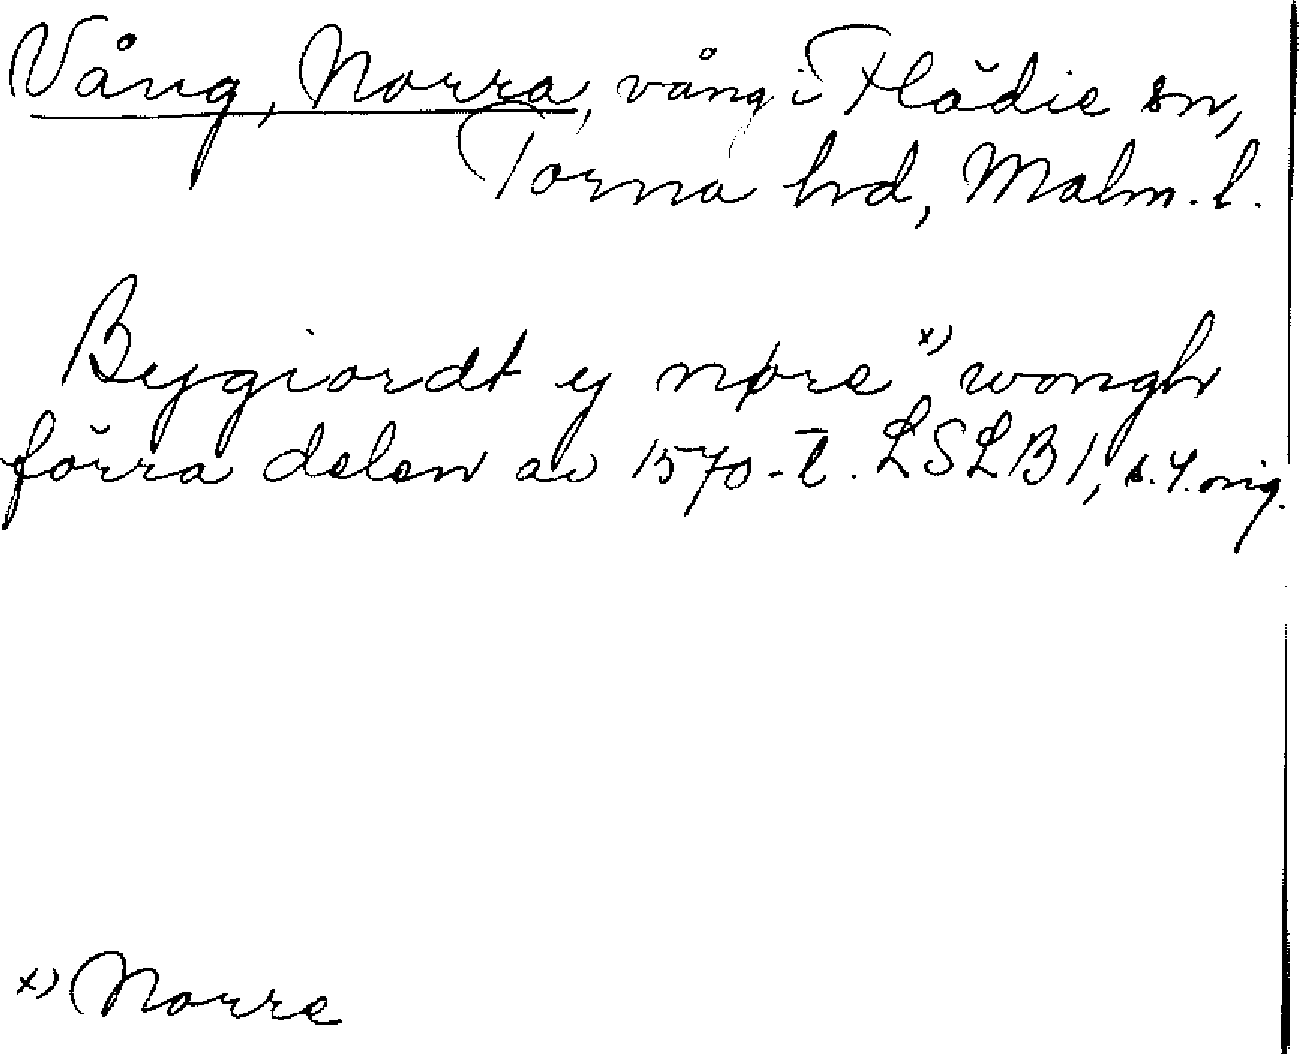 Vång, Norra, vång i Flädie sn,
Torna hd, Malm. l.
Bygiordt y nøre x) wongh
förra delen av 1570-t. LSLB 1, s. 4. orig.
x) Norre